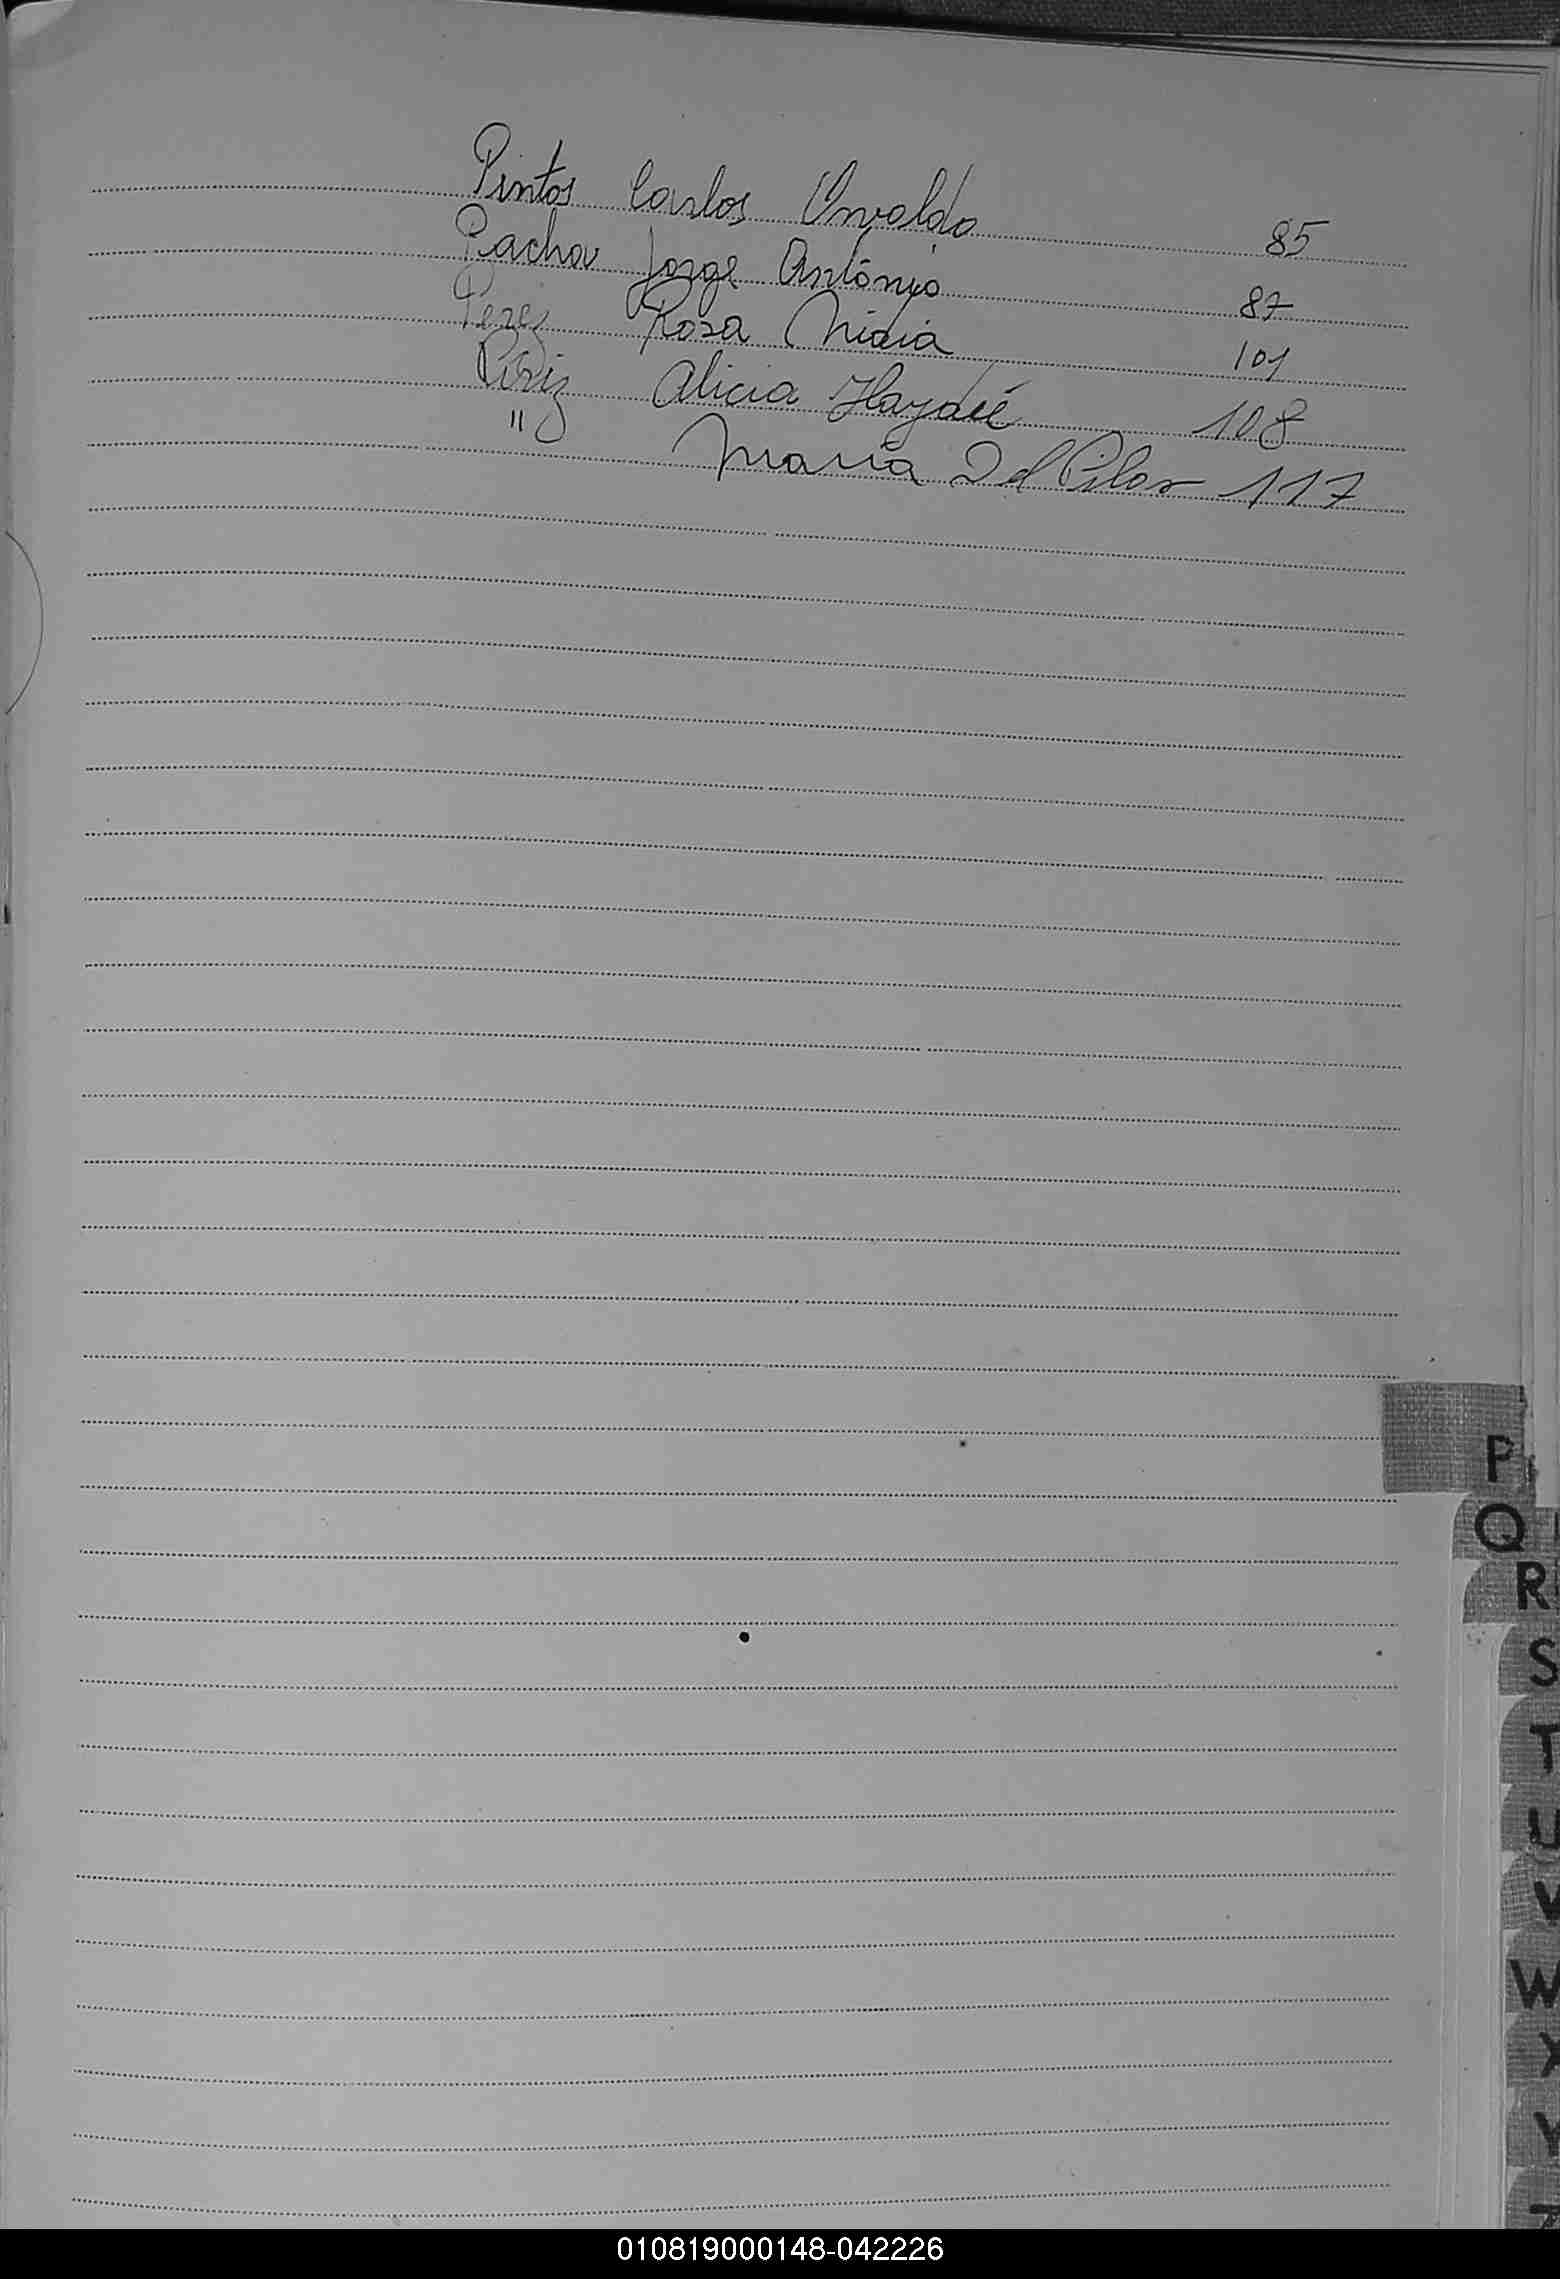 Pintos Carlos Osvaldo 85
Pacha Jorge Antonio 87
Perez Rosa Nidia 101
Piriz Alicia Haydeé 108
" Maria Del Pilar 117
P
Q
R
S
T
U
V
W
X
Y
Z
010819000148-042226